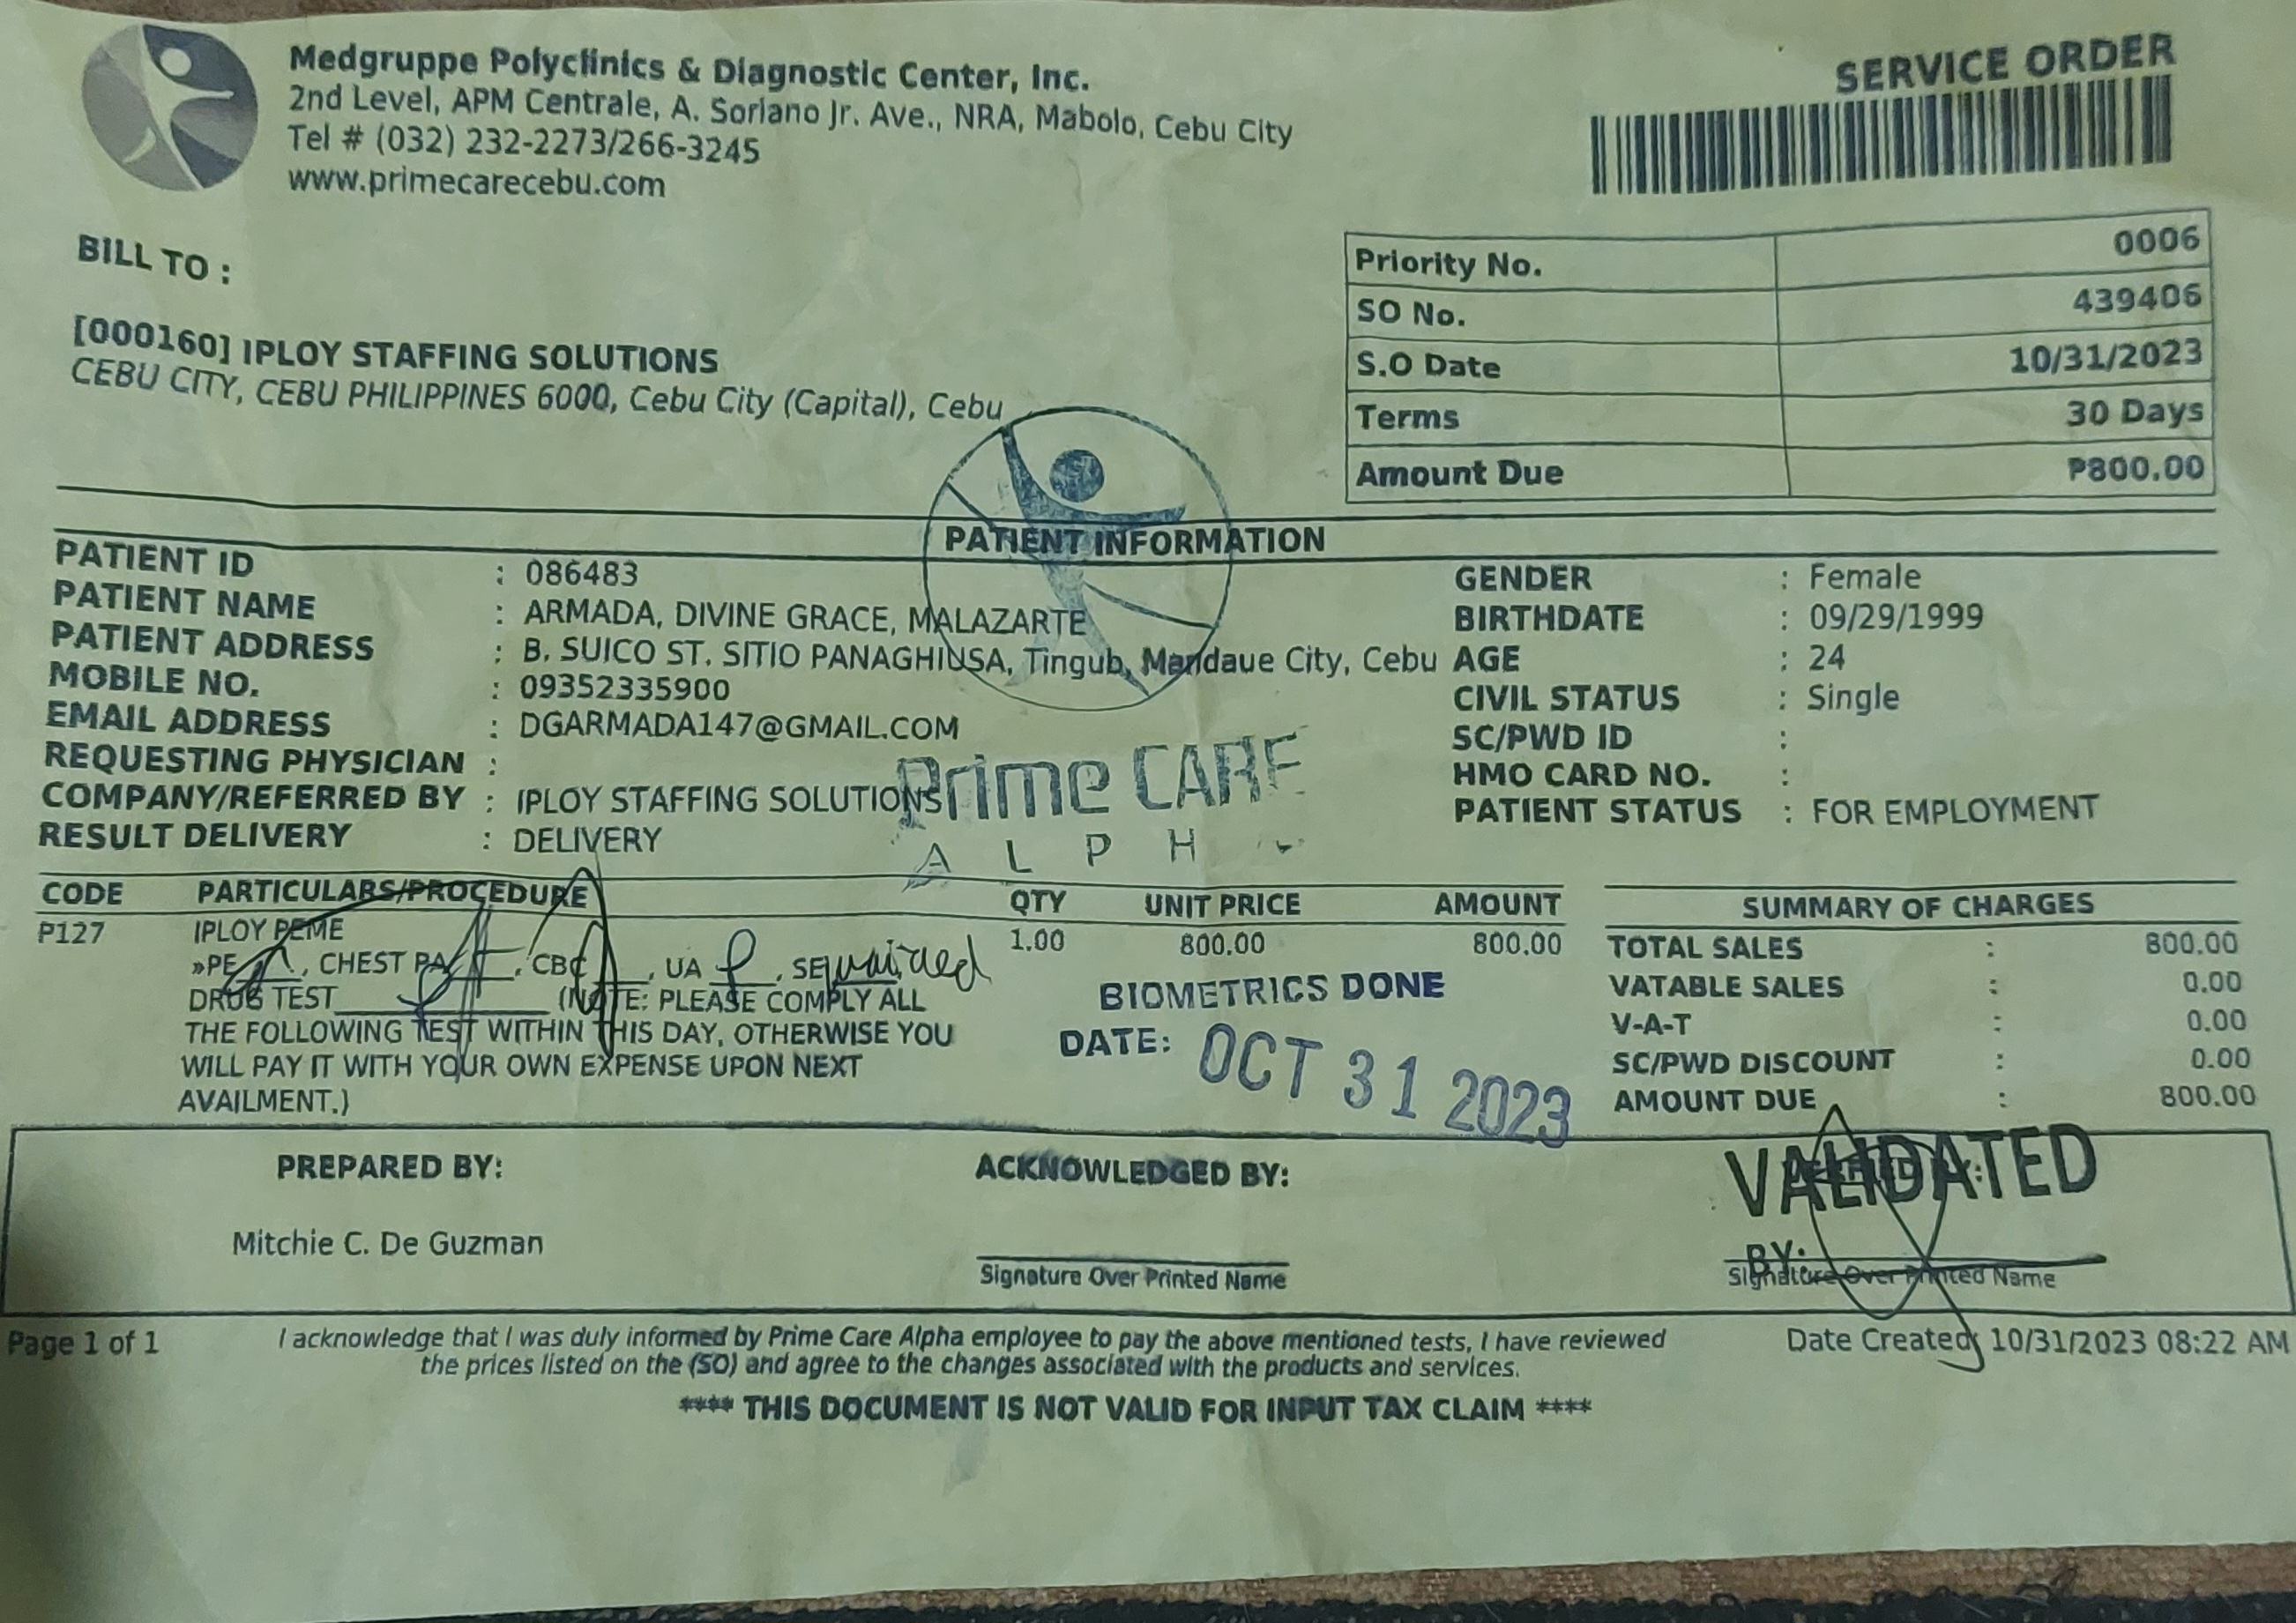 Medgruppe Polyclinics & Diagnostic Center, Inc.
2nd Level, APM Centrale, A. Soriano Jr. Ave., NRA, Mabolo, Cebu City
Tel # (032) 232-2273/266-3245
www.primecarecebu.com
SERVICE ORDER
BILL TO :
[000160] IPLOY STAFFING SOLUTIONS
CEBU CITY, CEBU PHILIPPINES 6000, Cebu City (Capital), Cebu
Priority No. 0006
SO No. 439406
S.O Date 10/31/2023
Terms 30 Days
Amount Due ₱800.00
PATIENT INFORMATION
PATIENT ID : 086483
PATIENT NAME : ARMADA, DIVINE GRACE, MALAZARTE
PATIENT ADDRESS : B. SUICO ST. SITIO PANAGHIUSA, Tingub, Mandaue City, Cebu
MOBILE NO. : 09352335900
EMAIL ADDRESS : DGARMADA147@GMAIL.COM
REQUESTING PHYSICIAN :
COMPANY/REFERRED BY : IPLOY STAFFING SOLUTIONS
RESULT DELIVERY : DELIVERY
GENDER : Female
BIRTHDATE : 09/29/1999
AGE : 24
CIVIL STATUS : Single
SC/PWD ID :
HMO CARD NO. :
PATIENT STATUS : FOR EMPLOYMENT
Prime CARE
A L P H
CODE PARTICULARS/PROCEDURE QTY UNIT PRICE AMOUNT
P127 IPLOY PEME 1.00 800.00 800.00
»PE , CHEST PA , CBC , UA , SE
DRUG TEST (NOTE: PLEASE COMPLY ALL
THE FOLLOWING TEST WITHIN THIS DAY, OTHERWISE YOU
WILL PAY IT WITH YOUR OWN EXPENSE UPON NEXT
AVAILMENT.)
BIOMETRICS DONE
DATE: OCT 31 2023
SUMMARY OF CHARGES
TOTAL SALES : 800.00
VATABLE SALES : 0.00
V-A-T : 0.00
SC/PWD DISCOUNT : 0.00
AMOUNT DUE : 800.00
PREPARED BY:
Mitchie C. De Guzman
ACKNOWLEDGED BY:
Signature Over Printed Name
VALIDATED
BY:
Signature Over Printed Name
Page 1 of 1
I acknowledge that I was duly informed by Prime Care Alpha employee to pay the above mentioned tests, I have reviewed
the prices listed on the (SO) and agree to the changes associated with the products and services.
Date Created: 10/31/2023 08:22 AM
**** THIS DOCUMENT IS NOT VALID FOR INPUT TAX CLAIM ****